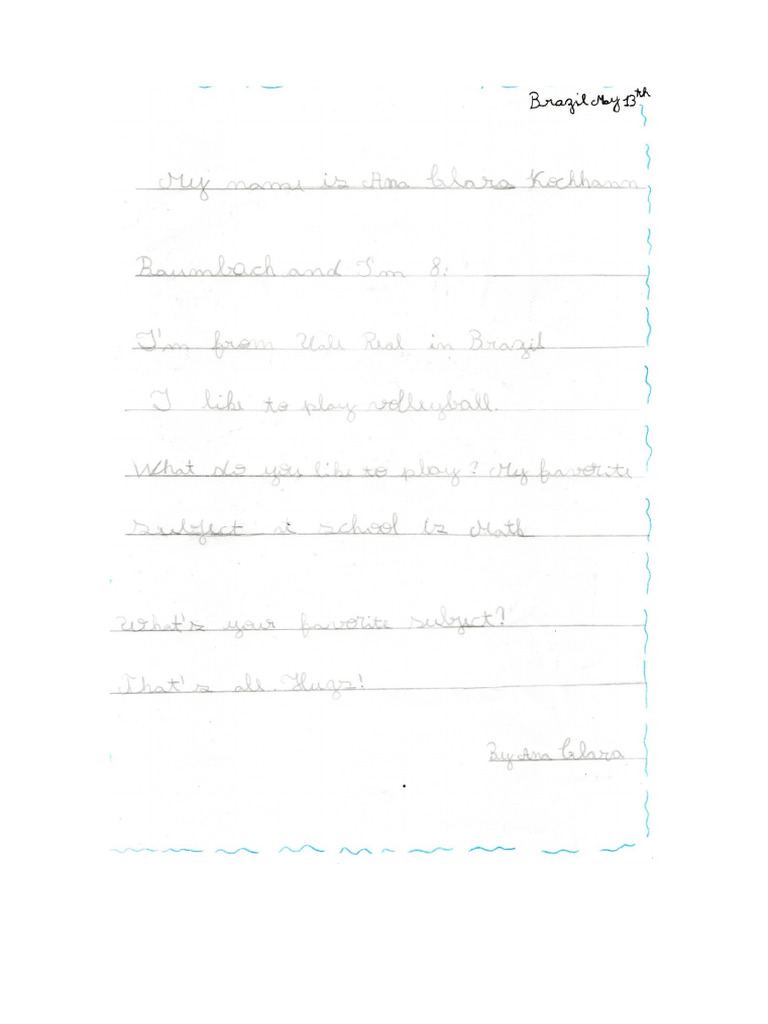 Brazil May 13th
My name is Ana Clara Kochhann
Baumbach and I'm 8.
I'm from Vale Real in Brazil
I like to play volleyball.
What do you like to play? My favorite
subject at school is Math
What's your favorite subject?
That's all. Hugs!
By Ana Clara